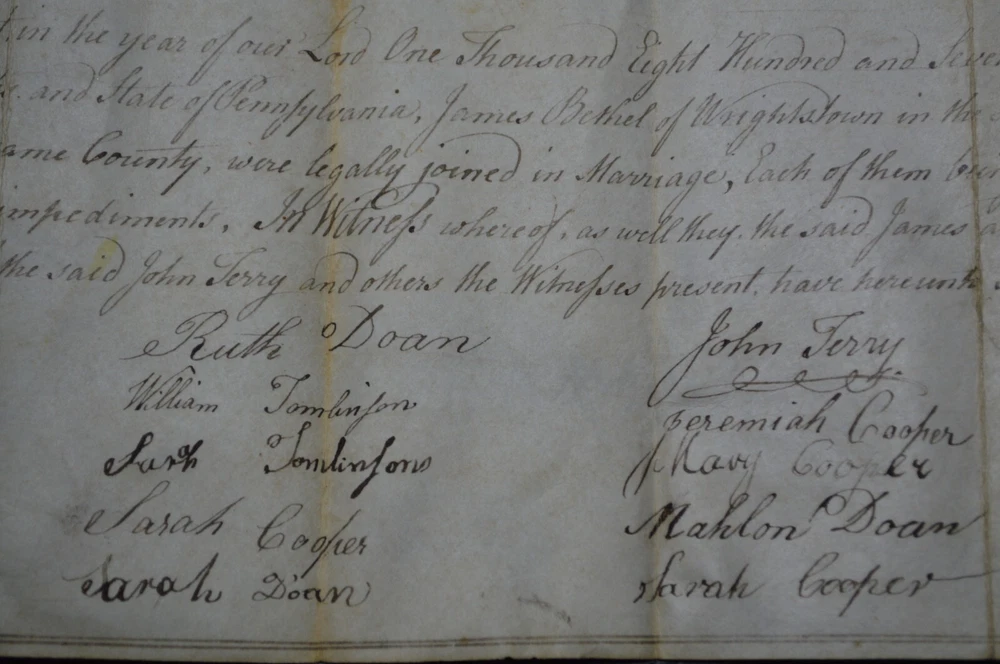 in the year of our Lord One Thousand Eight Hundred and Seven
and State of Pennsylvania, James Bethel of Wrightstown in the
ame County, were legally joined in Marriage, Each of them
impediments, In Witness whereof, as well they, the said James
the said John Terry and others the Witnesses present, have hereunto
Ruth Doan
William Tomlinson
Sarah Tomlinsons
Sarah Cooper
Sarah Doan
John Terry
Jeremiah Cooper
Mary Cooper
Mahlon Doan
Sarah Cooper